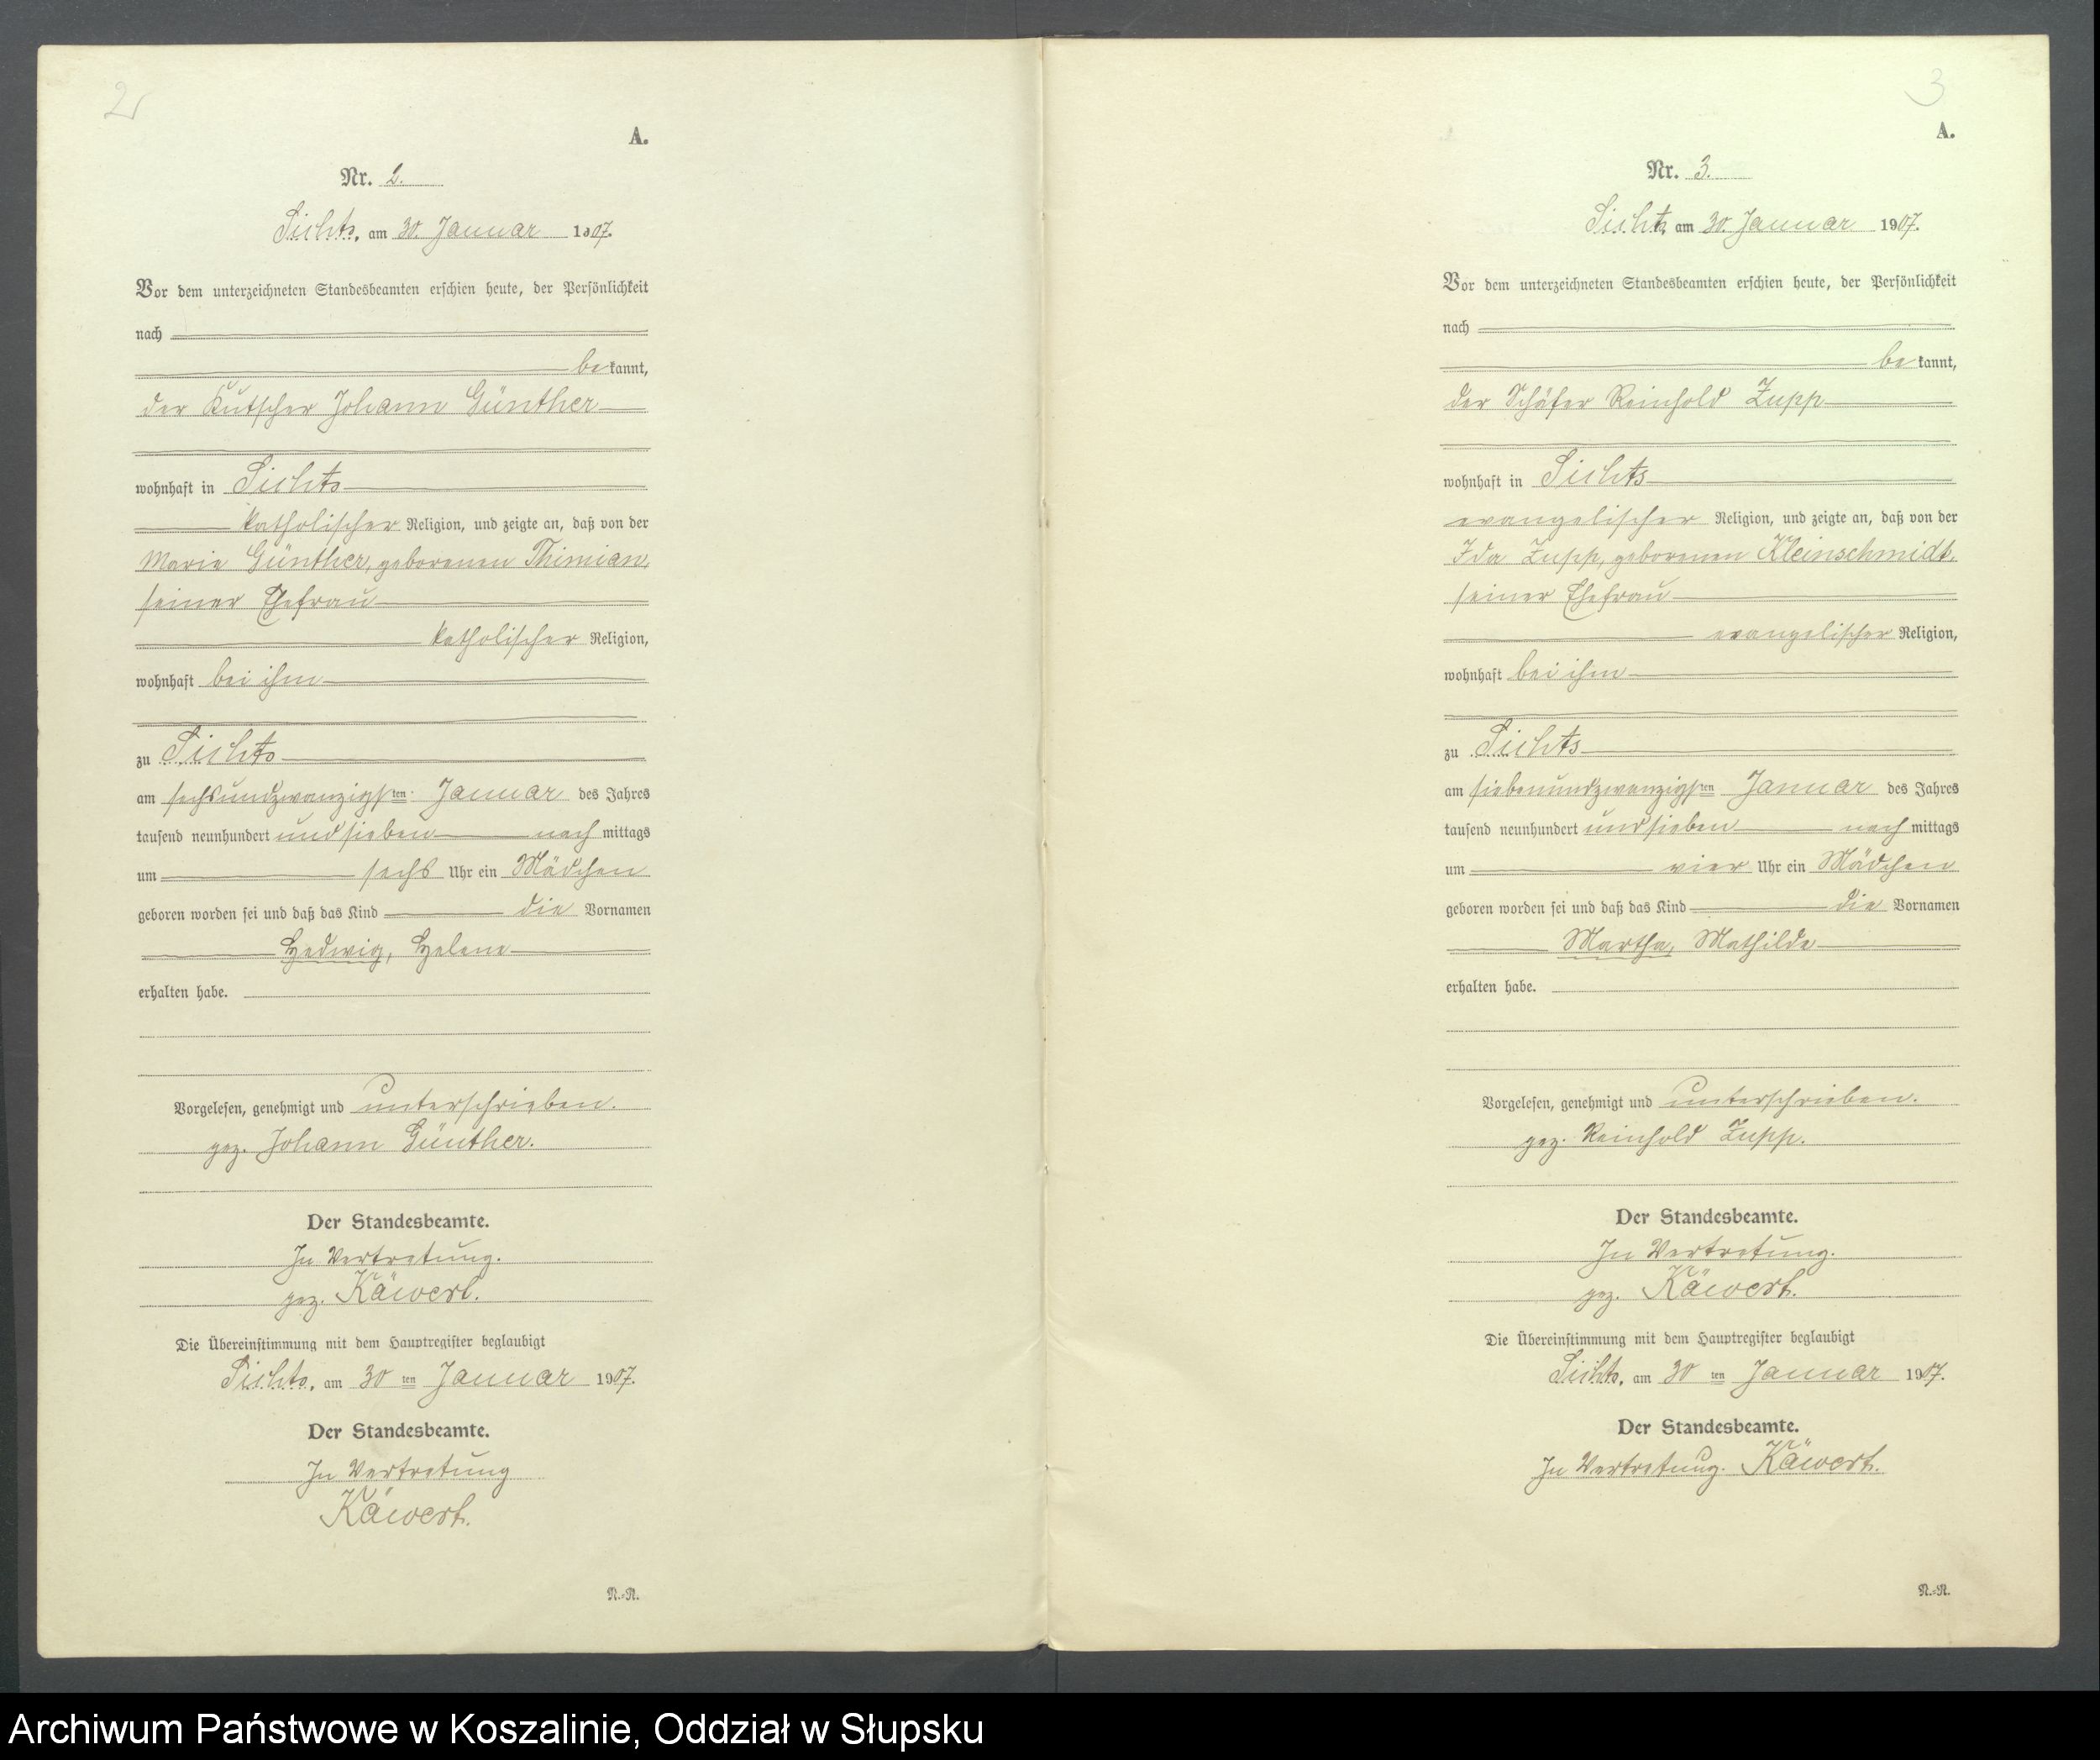 2
A.
Nr. 2.
Sichts, am 30. Januar 1907.
Vor dem unterzeichneten Standesbeamten erschien heute, der Persönlichkeit
nach
be kannt,
der Kutscher Johann Günther
wohnhaft in Sichts
katholischer Religion, und zeigte an, daß von der
Marie Günther, geborenen Thimian,
seiner Ehefrau
katholischer Religion,
wohnhaft bei ihm
zu Sichts
am sechsundzwanzigsten Januar des Jahres
tausend neunhundert und sieben nach mittags
um sechs Uhr ein Mädchen
geboren worden sei und daß das Kind die Vornamen
Hedwig, Helene
erhalten habe.
Vorgelesen, genehmigt und unterschrieben.
gez. Johann Günther.
Der Standesbeamte.
In Vertretung.
gez. Käwert.
Die Übereinstimmung mit dem Hauptregister beglaubigt
Sichts, am 30 ten Januar 1907.
Der Standesbeamte.
In Vertretung
Käwert.
N.-R.
3
A.
Nr. 3.
Sichts, am 30. Januar 1907.
Vor dem unterzeichneten Standesbeamten erschien heute, der Persönlichkeit
nach
be kannt,
der Schäfer Reinhold Zupp
wohnhaft in Sichts
evangelischer Religion, und zeigte an, daß von der
Ida Zupp, geborenen Kleinschmidt,
seiner Ehefrau
evangelischer Religion,
wohnhaft bei ihm
zu Sichts
am siebenundzwanzigsten Januar des Jahres
tausend neunhundert und sieben nach mittags
um vier Uhr ein Mädchen
geboren worden sei und daß das Kind die Vornamen
Martha, Mathilde
erhalten habe.
Vorgelesen, genehmigt und unterschrieben.
gez. Reinhold Zupp.
Der Standesbeamte.
In Vertretung.
gez. Käwert.
Die Übereinstimmung mit dem Hauptregister beglaubigt
Sichts, am 30 ten Januar 1907.
Der Standesbeamte.
In Vertretung. Käwert.
N.-R.
Archiwum Państwowe w Koszalinie, Oddział w Słupsku